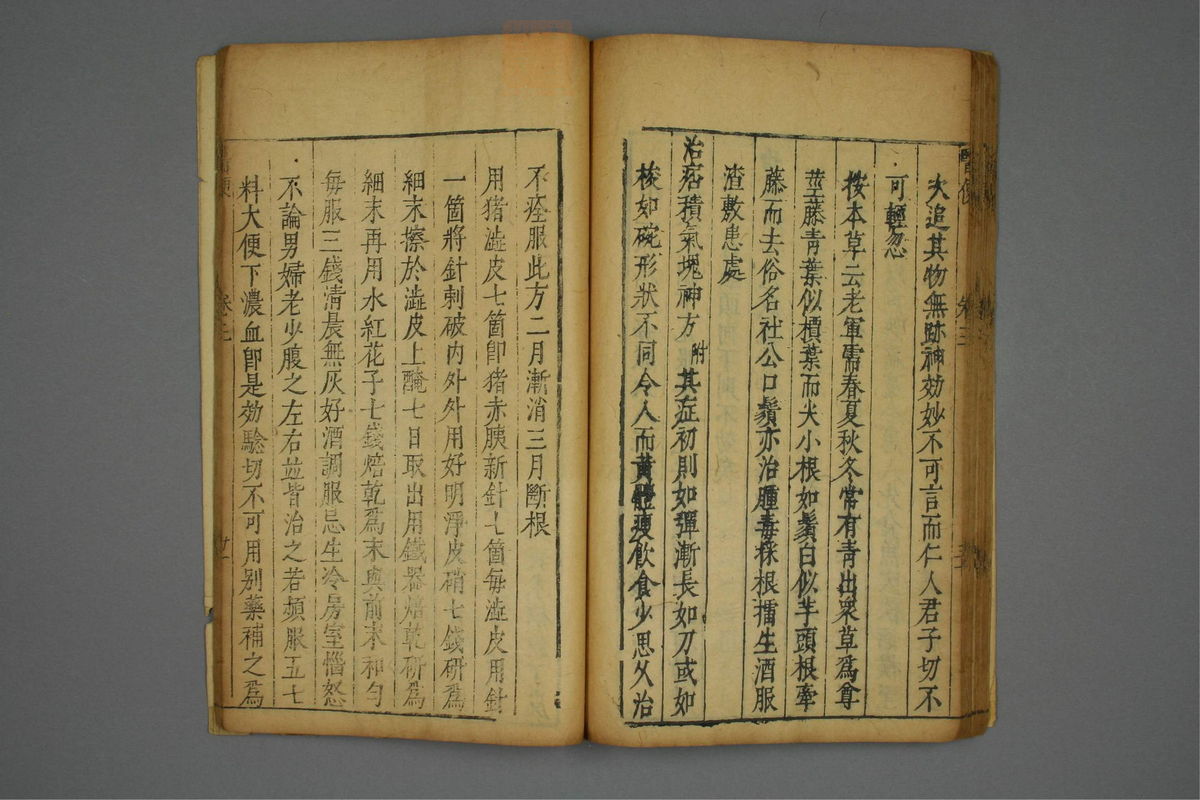 次追其物無跡神効妙不可言而仁人君子切不
可輕忽
按本草云老軍需春夏秋冬常有青出衆草爲尊
莖藤青葉似槓葉而大小根如鬚白似芋頭根牽
藤而去俗名社公口鬚亦治腫毒採根擂生酒服
渣敷患處
治痞積氣塊神方附其症初則如彈漸長如刀或如
梭如碗形狀不同令人面黃體瘦飲食少思久治
不痊服此方二月漸消三月斷根
用猪澁皮七箇卽猪赤胰新針七箇每澁皮用針
一箇將針刺破內外外用好明淨皮硝七錢研爲
細末擦於澁皮上醃七日取出用鐵器焙乾研爲
細末再用水紅花子七錢焙乾爲末與前末和勻
每服三錢清晨無灰好酒調服忌生冷房室惱怒
不論男婦老少腹之左右並皆治之若頻服五七
料大便下濃血卽是効驗切不可用別藥補之爲
卷三
廿一